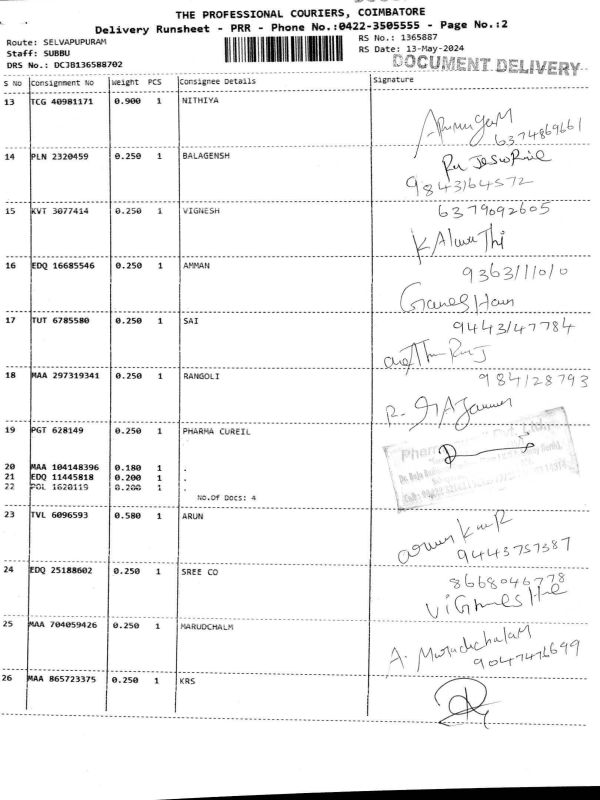 THE PROFESSIONAL COURIERS, COIMBATORE
Delivery Runsheet - PRR - Phone No.:0422-3505555 - Page No.:2
Route: SELVAPUPURAM
RS No.: 1365887
Staff: SUBBU
RS Date: 13-May-2024
DRS No.: DCJB136588702
DOCUMENT DELIVERY
S No Consignment No Weight PCS Consignee Details Signature
13 TCG 40981171 0.900 1 NITHIYA
6374869661
14 PLN 2320459 0.250 1 BALAGENSH
9843164572
15 KVT 3077414 0.250 1 VIGNESH 6379092605
16 EDQ 16685546 0.250 1 AMMAN
9363111010
17 TUT 6785580 0.250 1 SAI
9443147784
18 MAA 297319341 0.250 1 RANGOLI
984128793
19 PGT 628149 0.250 1 PHARMA CUREIL
20 MAA 104148396 0.180 1 .
21 EDQ 11445818 0.200 1 .
22 POL 1620119 0.200 1 .
No.Of Docs: 4
23 TVL 6096593 0.580 1 ARUN
9443757387
24 EDQ 25188602 0.250 1 SREE CO
8668046778
25 MAA 704059426 0.250 1 MARUDCHALM
A. Marudachalam
9047476699
26 MAA 865723375 0.250 1 KRS